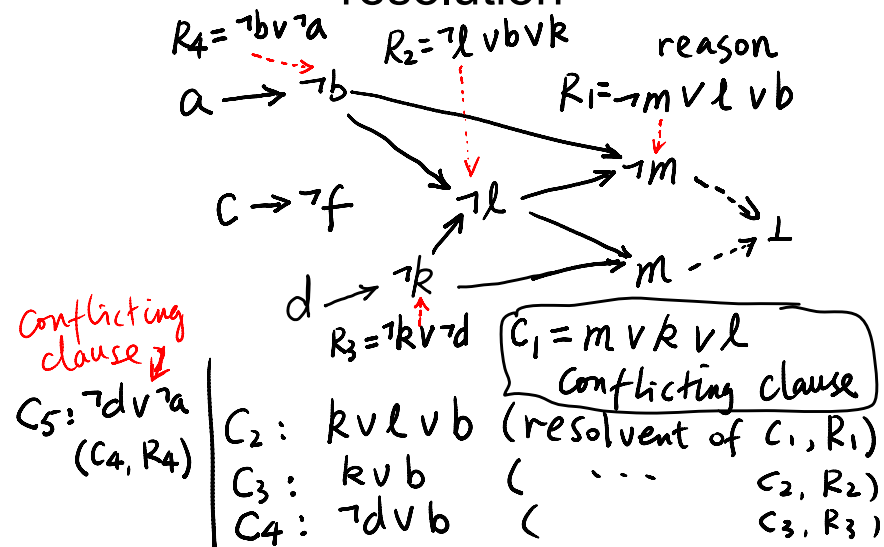 resolution
R4=¬b∨¬a
R2=¬l∨b∨k
reason
R1=¬m∨l∨b
a → ¬b
¬m
c → ¬f
¬l
⊥
d → ¬k
m
R3=¬k∨¬d
C1=m∨k∨l
conflicting clause
conflicting
clause
C5:¬d∨¬a
(C4, R4)
C2: k∨l∨b (resolvent of C1, R1)
C3: k∨b ( ... C2, R2)
C4: ¬d∨b ( C3, R3)